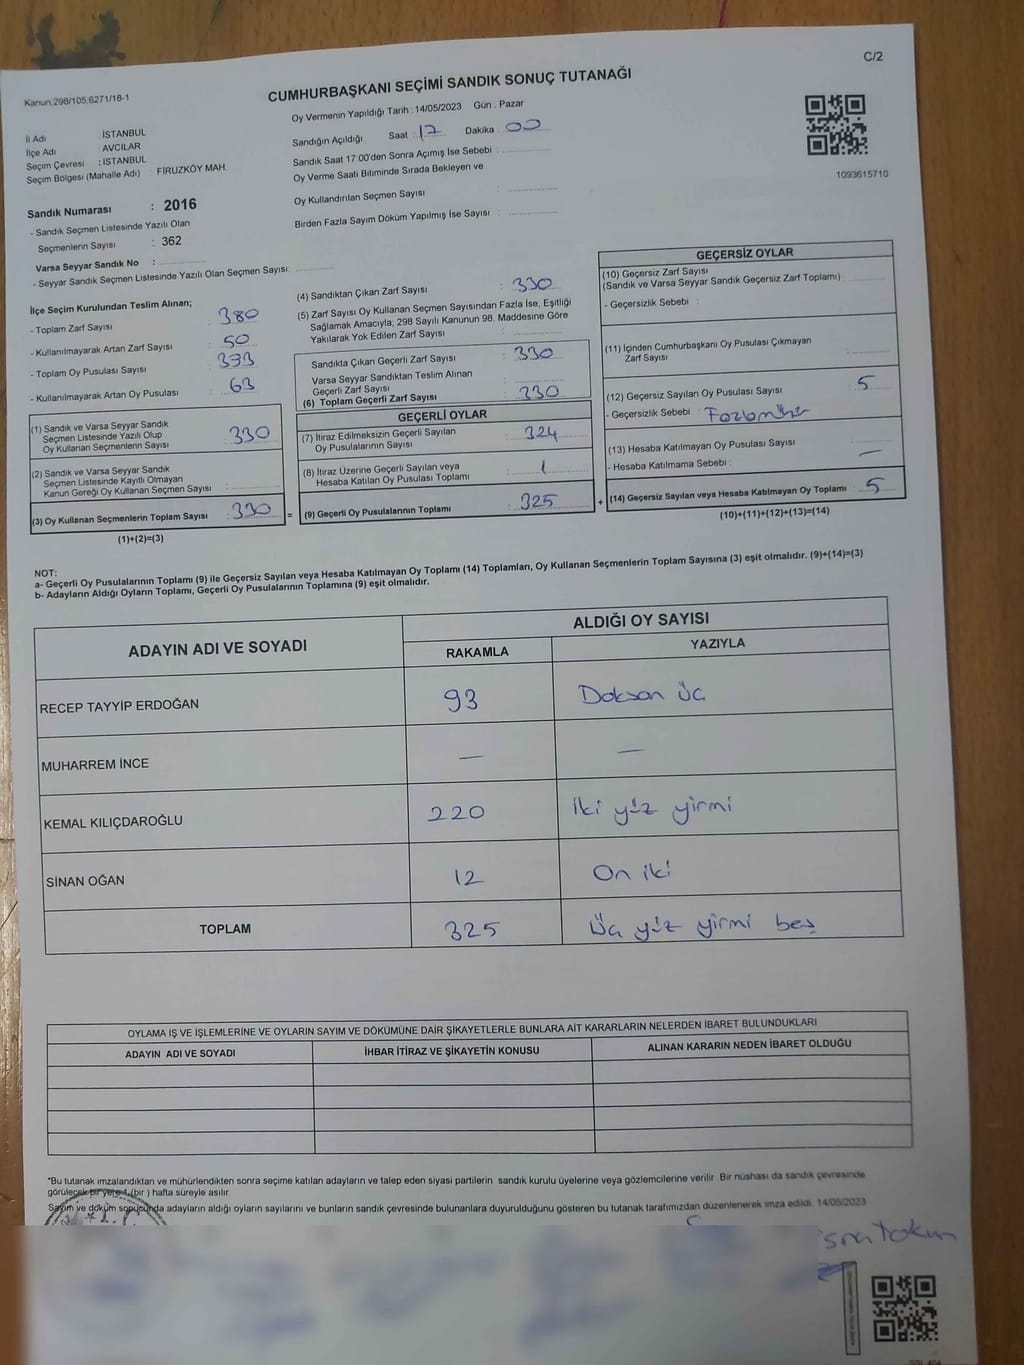 C/2
Kanun;298/105,6271/18-1
CUMHURBAŞKANI SEÇİMİ SANDIK SONUÇ TUTANAĞI
Oy Vermenin Yapıldığı Tarih : 14/05/2023 Gün : Pazar
İl Adı İSTANBUL
İlçe Adı : AVCILAR
Seçim Çevresi : İSTANBUL
Seçim Bölgesi (Mahalle Adı) FİRUZKÖY MAH.
Sandığın Açıldığı Saat : 17 Dakika : 00
Sandık Saat 17:00'den Sonra Açımış İse Sebebi :
Oy Verme Saati Bitiminde Sırada Bekleyen ve
Oy Kullandırılan Seçmen Sayısı :
Birden Fazla Sayım Döküm Yapılmış İse Sayısı :
1093615710
Sandık Numarası : 2016
- Sandık Seçmen Listesinde Yazılı Olan
Seçmenlerin Sayısı : 362
Varsa Seyyar Sandık No :
- Seyyar Sandık Seçmen Listesinde Yazılı Olan Seçmen Sayısı:
İlçe Seçim Kurulundan Teslim Alınan;
- Toplam Zarf Sayısı : 380
- Kullanılmayarak Artan Zarf Sayısı : 50
- Toplam Oy Pusulası Sayısı : 393
- Kullanılmayarak Artan Oy Pusulası : 63
(1) Sandık ve Varsa Seyyar Sandık
Seçmen Listesinde Yazılı Olup
Oy Kullanan Seçmenlerin Sayısı : 330
(2) Sandık ve Varsa Seyyar Sandık
Seçmen Listesinde Kayıtlı Olmayan
Kanun Gereği Oy Kullanan Seçmen Sayısı :
(3) Oy Kullanan Seçmenlerin Toplam Sayısı : 330
(1)+(2)=(3)
(4) Sandıktan Çıkan Zarf Sayısı : 330
(5) Zarf Sayısı Oy Kullanan Seçmen Sayısından Fazla İse, Eşitliği
Sağlamak Amacıyla; 298 Sayılı Kanunun 98. Maddesine Göre
Yakılarak Yok Edilen Zarf Sayısı :
Sandıkta Çıkan Geçerli Zarf Sayısı : 330
Varsa Seyyar Sandıktan Teslim Alınan
Geçerli Zarf Sayısı :
(6) Toplam Geçerli Zarf Sayısı : 330
GEÇERLİ OYLAR
(7) İtiraz Edilmeksizin Geçerli Sayılan
Oy Pusulalarının Sayısı : 324
(8) İtiraz Üzerine Geçerli Sayılan veya
Hesaba Katılan Oy Pusulası Toplamı : 1
= (9) Geçerli Oy Pusulalarının Toplamı : 325
GEÇERSİZ OYLAR
(10) Geçersiz Zarf Sayısı
(Sandık ve Varsa Seyyar Sandık Geçersiz Zarf Toplamı) :
- Geçersizlik Sebebi :
(11) İçinden Cumhurbaşkanı Oy Pusulası Çıkmayan
Zarf Sayısı :
(12) Geçersiz Sayılan Oy Pusulası Sayısı : 5
- Geçersizlik Sebebi : Fazla
(13) Hesaba Katılmayan Oy Pusulası Sayısı :
- Hesaba Katılmama Sebebi : —
+ (14) Geçersiz Sayılan veya Hesaba Katılmayan Oy Toplamı 5
(10)+(11)+(12)+(13)=(14)
NOT:
a- Geçerli Oy Pusulalarının Toplamı (9) ile Geçersiz Sayılan veya Hesaba Katılmayan Oy Toplamı (14) Toplamları, Oy Kullanan Seçmenlerin Toplam Sayısına (3) eşit olmalıdır. (9)+(14)=(3)
b- Adayların Aldığı Oyların Toplamı, Geçerli Oy Pusulalarının Toplamına (9) eşit olmalıdır.
ADAYIN ADI VE SOYADI ALDIĞI OY SAYISI
RAKAMLA YAZIYLA
RECEP TAYYİP ERDOĞAN 93 Doksan üç
MUHARREM İNCE — —
KEMAL KILIÇDAROĞLU 220 İki yüz yirmi
SİNAN OĞAN 12 On iki
TOPLAM 325 Üç yüz yirmi beş
OYLAMA İŞ VE İŞLEMLERİNE VE OYLARIN SAYIM VE DÖKÜMÜNE DAİR ŞİKAYETLERLE BUNLARA AİT KARARLARIN NELERDEN İBARET BULUNDUKLARI
ADAYIN ADI VE SOYADI İHBAR İTİRAZ VE ŞİKAYETİN KONUSU ALINAN KARARIN NEDEN İBARET OLDUĞU
*Bu tutanak imzalandıktan ve mühürlendikten sonra seçime katılan adayların ve talep eden siyasi partilerin sandık kurulu üyelerine veya gözlemcilerine verilir. Bir nüshası da sandık çevresinde
görülecek bir yere 1 (bir ) hafta süreyle asılır.
Sayım ve döküm sonucunda adayların aldığı oyların sayılarını ve bunların sandık çevresinde bulunanlara duyurulduğunu gösteren bu tutanak tarafımızdan düzenlenerek imza edildi. 14/05/2023